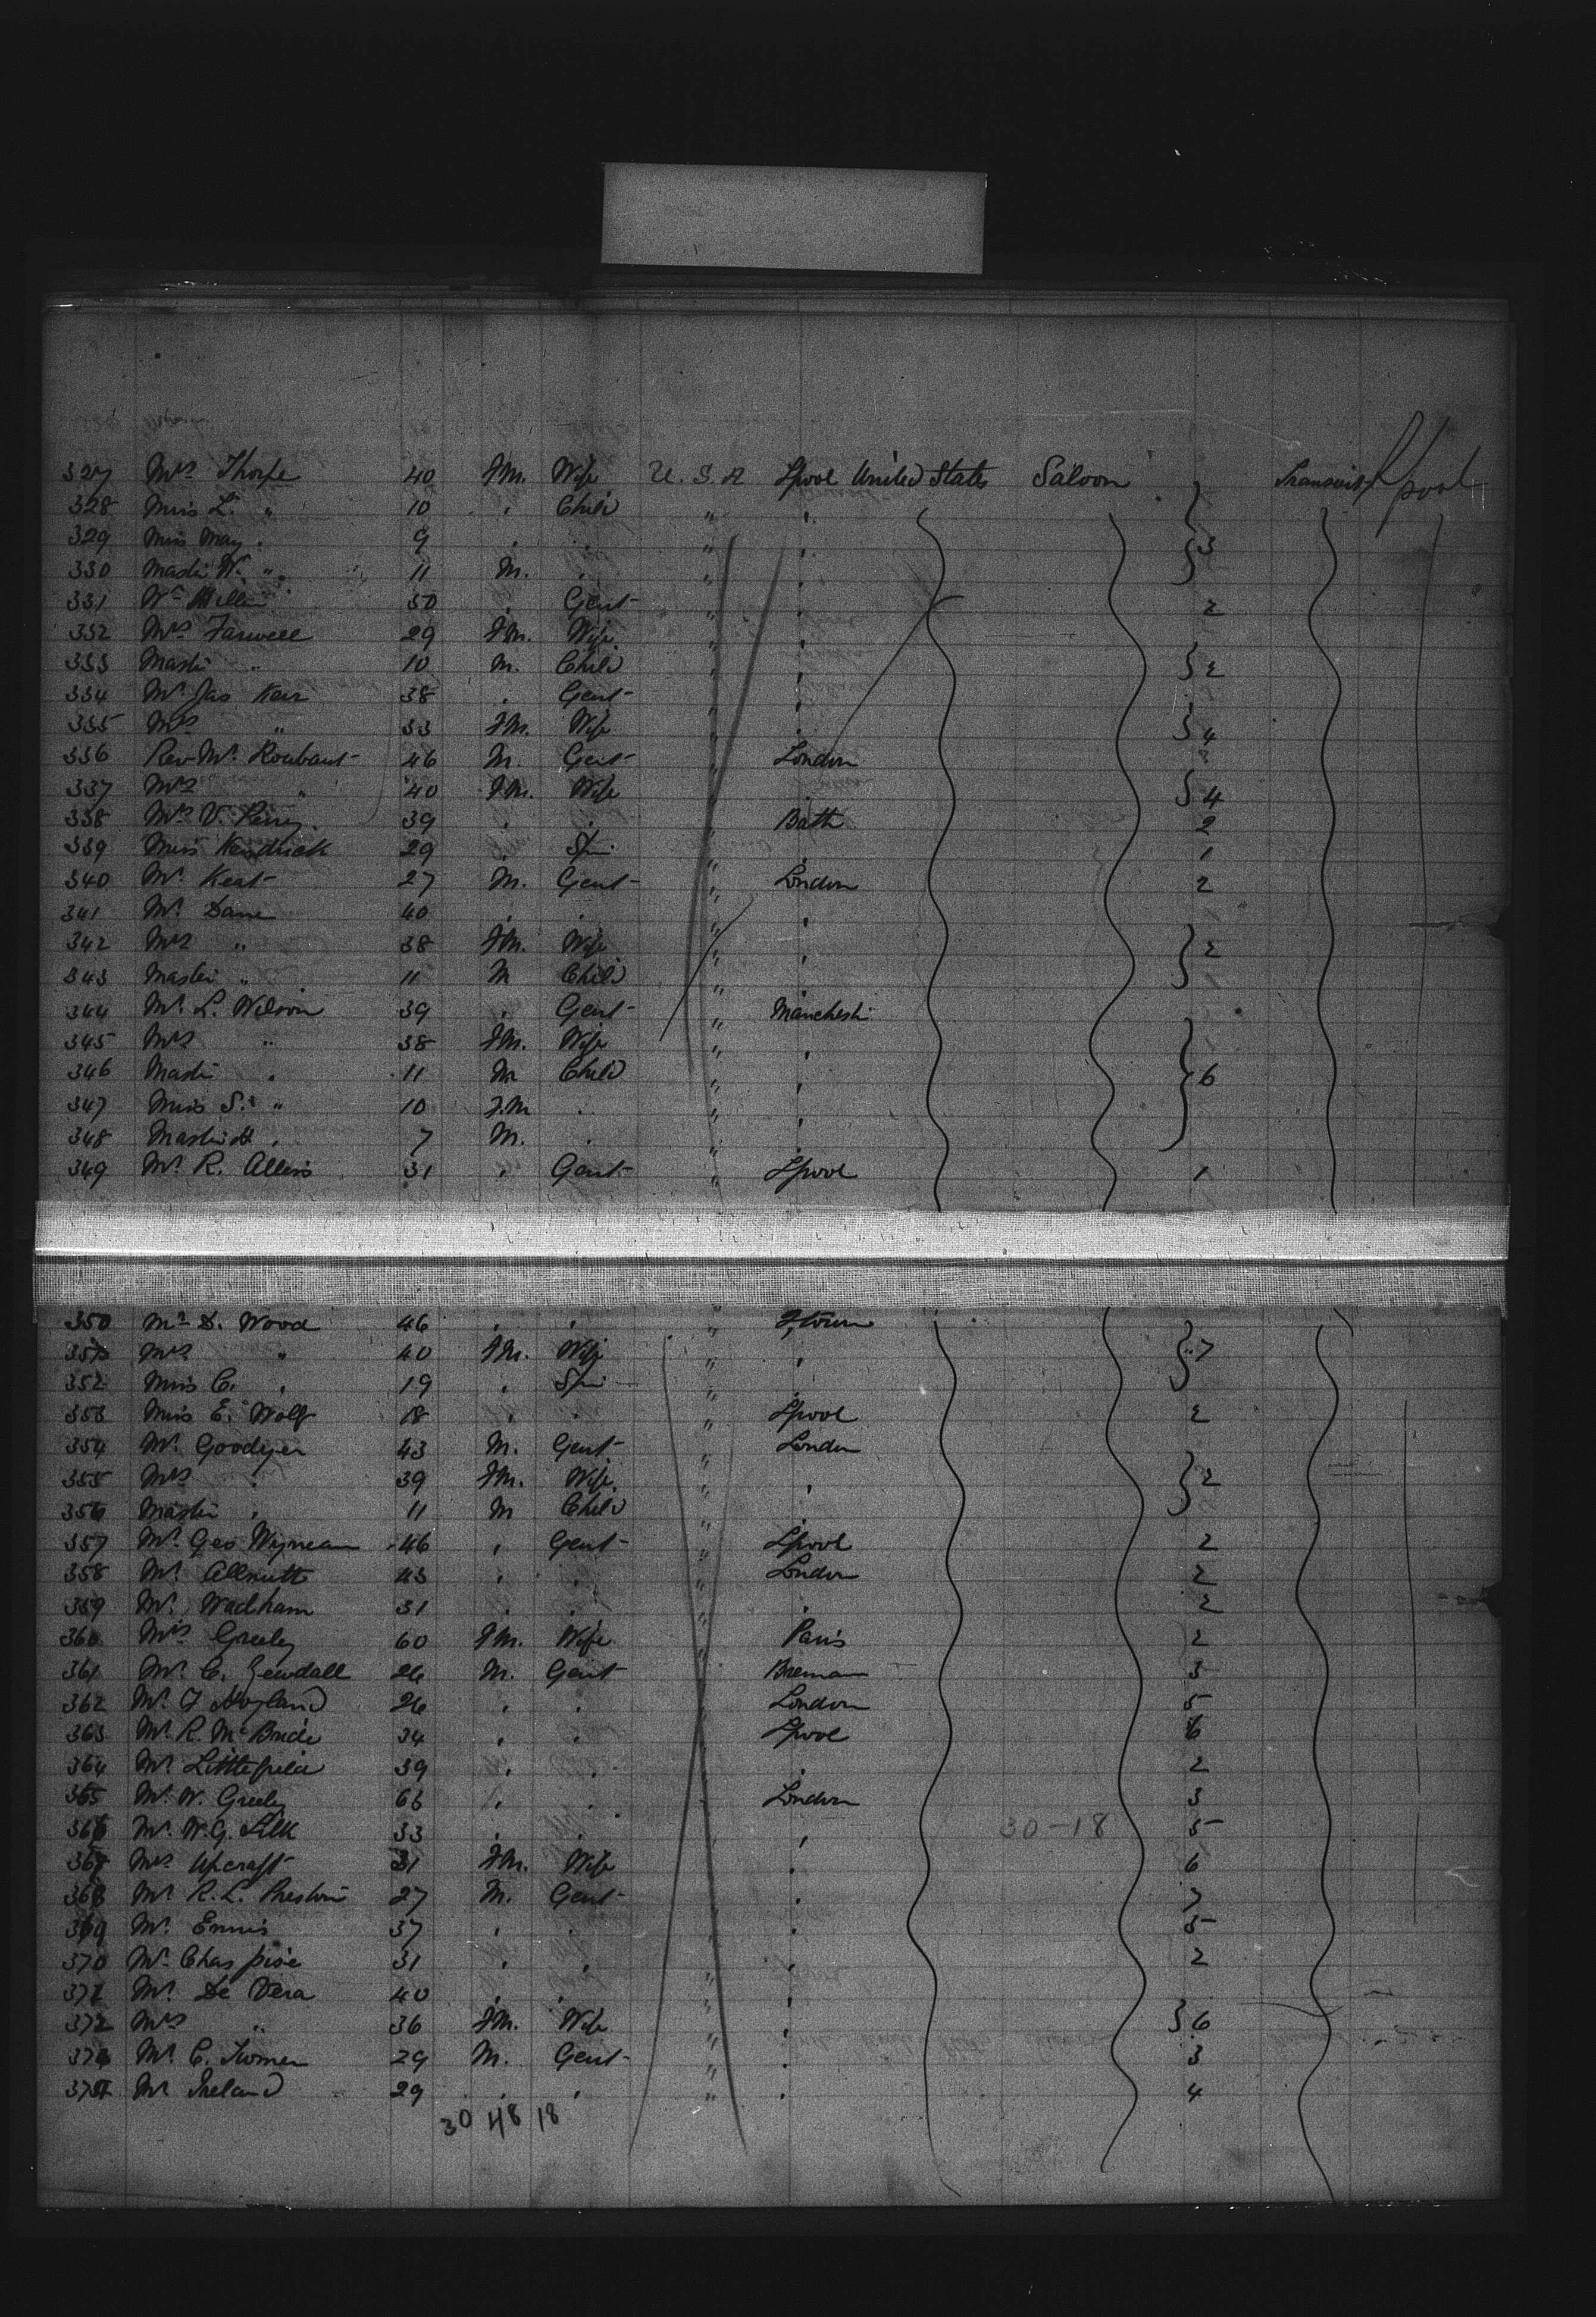 327 Mrs Thorpe 40 Fm. Wife U. S. A Lpool United States Saloon Transient Lpool
328 Miss L. " 10 . Child " .
329 Miss May . 9 . . " . 3
330 Master W. " 11 M. . " .
331 50 . Gent " . 2
332 Mrs Farwell 29 Fm. Wife " .
333 Master " 10 M. Child " . 2
334 Mr Jas Kerr 38 . Gent " .
335 Mrs " 33 Fm. Wife " . 4
336 Rev Mr Roubaut 46 M. Gent " London
337 Mrs " 40 Fm. Wife " . 4
338 Mrs V. Perry. 39 . . " Bath 2
339 Miss Kendrick 29 . Spi " . 1
340 Mr Keat 27 M. Gent " London 2
341 Mr Dane 40 . . " .
342 Mrs " 38 Fm. Wife " . 2
343 Master " 11 M Child " .
344 Mr L. Wilson 39 . Gent " Manchestr
345 Mrs " 38 Fm. Wife " .
346 Master . 11 M Child " . 6
347 Miss S. " 10 F.M . " .
348 Master H . 7 M. . " .
349 Mr R. Allens 31 . Gent " Lpool 1
350 Mr D. Wood 46 . . "
351 Mrs " 40 Fm. Wife " . 7
352 Miss C. . 19 . Spi " .
353 Miss E. Wolf 18 . . " Lpool 2
354 Mr Goodyer 43 M. Gent " London
355 Mrs . 39 Fm. Wife " . 2
356 Master . 11 M Child " .
357 Mr Geo Wyneam 46 . Gent " Lpool 2
358 Mr Allnutt 43 . . " London 2
359 Mr Wadham 31 . . " . 2
360 Mrs Greely 60 Fm. Wife " Paris 2
361 Mr C. Zewdall 26 M. Gent Breman 3
362 Mr F Hoyland 26 . . London 5
363 Mr R. McBride 34 . . Lpool 6
364 Mr Littlefield 39 . . . 2
365 Mr W. Greely 66 . . London 3
366 Mr W. G. Silk 33 . . . 30-18 5
367 Mrs Upcraft 31 Fm. Wife . 6
368 Mr R. L. Preston 27 M. Gent . 7
369 Mr Ennis 37 . . . 5
370 Mr Chas 31 . . . 2
371 Mr De Vera 40 . . " .
372 Mrs " 36 Fm. Wife " . 6
373 Mr C. 29 M. Gent " . 3
374 Mr Ireland 29 . . " . 4
30 48 18